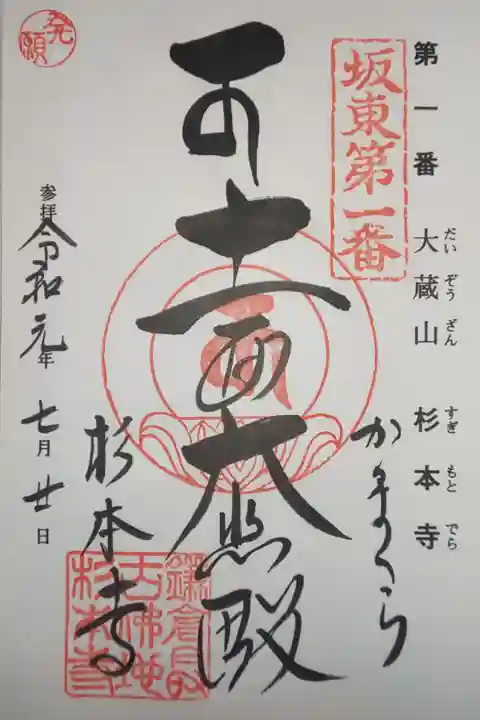 第一番 大蔵山 杉本寺
だい ぞう ざん すぎ もと でら
坂東第一番
かまくら
十一面大悲殿
杉本寺
鎌倉最
古佛地
杉本寺
発願
参拝 令和元年 七月廿日